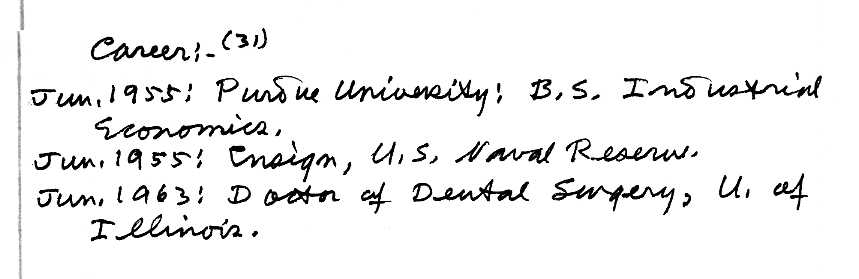 Career:- (31)
Jun. 1955: Purdue University: B.S. Industrial
Economics.
Jun. 1955: Ensign, U.S. Naval Reserve.
Jun. 1963: Doctor of Dental Surgery, U. of
Illinois.